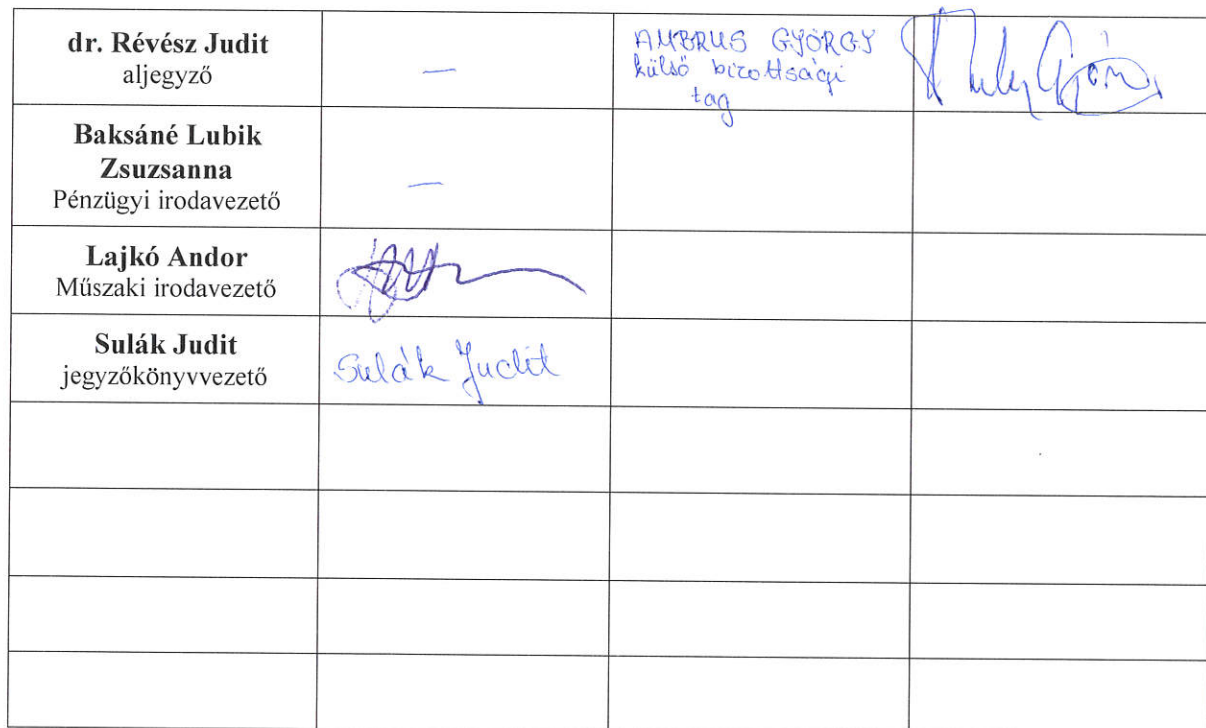 dr. Révész Judit
aljegyző
—
AMBRUS GYÖRGY
külső bizottsági
tag
Baksáné Lubik
Zsuzsanna
Pénzügyi irodavezető
—
Lajkó Andor
Műszaki irodavezető
Sulák Judit
jegyzőkönyvvezető
Sulák Judit